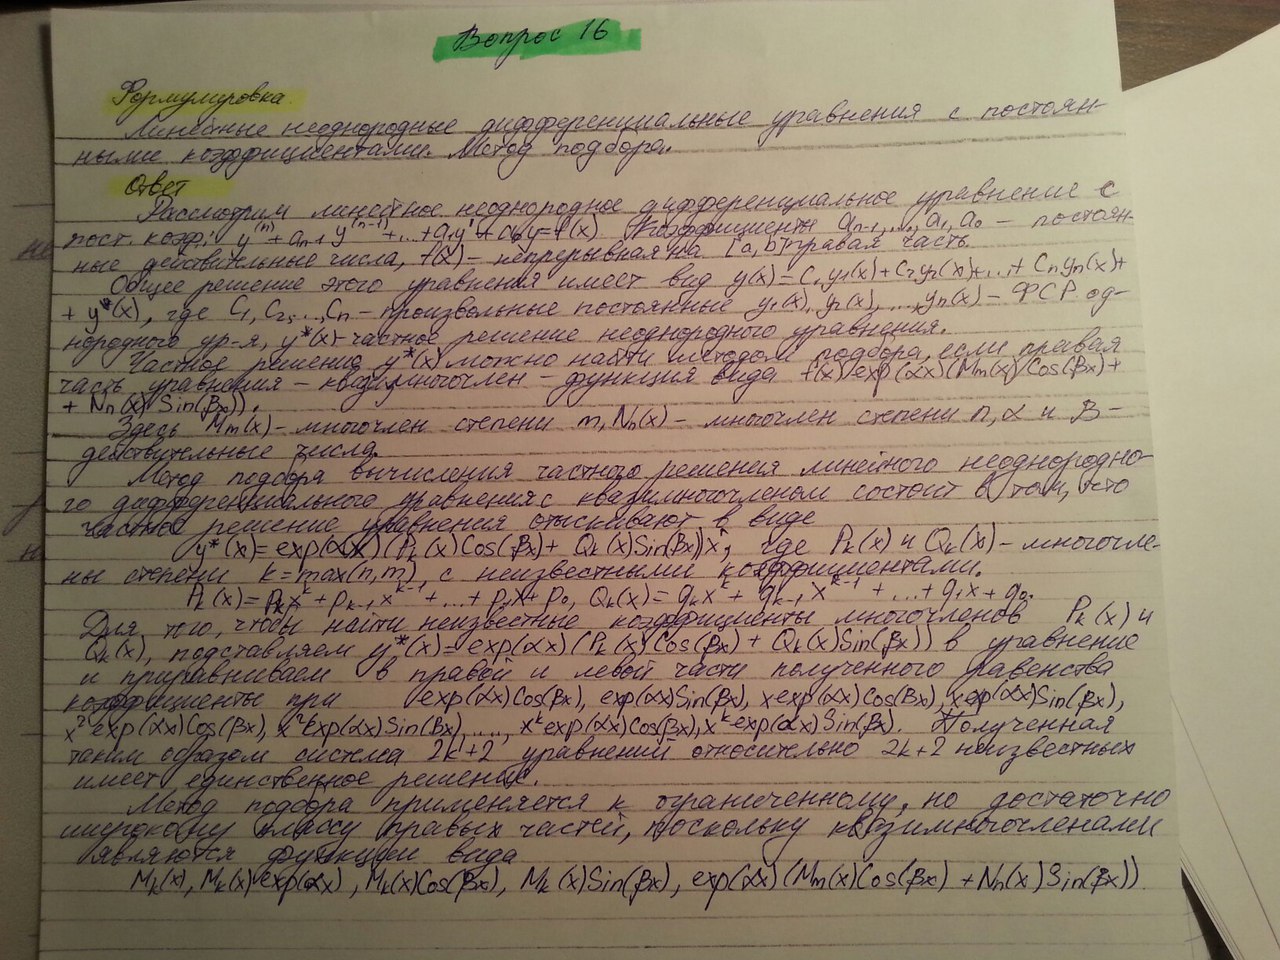 Вопрос 16
Формулировка.
Линейные неоднородные дифференциальные уравнения с постоян-
ными коэффициентами. Метод подбора.
Ответ
Рассмотрим линейное неоднородное дифференциальное уравнение с
пост. коэф.: y⁽ⁿ⁾+aₙ₋₁y⁽ⁿ⁻¹⁾+...+a₁y'+a₀y=f(x). Коэффициенты aₙ₋₁,...,a₁, a₀ – постоян-
ные действительные числа, f(x) – непрерывная на [a, b] правая часть.
Общее решение этого уравнения имеет вид y(x)=C₁y₁(x)+C₂y₂(x)+...+Cₙyₙ(x)+
+ y*(x), где C₁, C₂,...,Cₙ – произвольные постоянные y₁(x), y₂(x),...,yₙ(x) – ФСР од-
нородного ур-я, y*(x)-частное решение неоднородного уравнения.
Частное решение y*(x) можно найти методом подбора, если правая
часть уравнения – квазимногочлен – функция вида f(x) exp(αx)(Mₘ(x)Cos(βx)+
+ Nₙ(x)Sin(βx)).
Здесь Mₘ(x)-многочлен степени m, Nₙ(x) – многочлен степени n, α и β –
действительные числа.
Метод подбора вычисления частного решения линейного неоднородно-
го дифференциального уравнения с квазимногочленом состоит в том, что
частное решение уравнения отыскивают в виде
y*(x)=exp(αx)(Pₖ(x)Cos(βx)+ Qₖ(x)Sin(βx))xʳ, где Pₖ(x) и Qₖ(x) – многочле-
ны степени k=max(n,m), с неизвестными коэффициентами.
Pₖ(x)=pₖxᵏ+pₖ₋₁xᵏ⁻¹+...+p₁x+p₀, Qₖ(x)=qₖxᵏ+qₖ₋₁xᵏ⁻¹+...+q₁x+q₀.
Для того, чтобы найти неизвестные коэффициенты многочленов Pₖ(x) и
Qₖ(x), подставляем y*(x)=exp(αx)(Pₖ(x)Cos(βx)+Qₖ(x)Sin(βx)) в уравнение
и приравниваем в правой и левой части полученного равенства
коэффициенты при exp(αx)Cos(βx), exp(αx)Sin(βx), xexp(αx)Cos(βx), xexp(αx)Sin(βx),
x²exp(αx)Cos(βx), x²exp(αx)Sin(βx),..., xᵏexp(αx)Cos(βx), xᵏexp(αx)Sin(βx). Полученная
таким образом система 2k+2 уравнений относительно 2k+2 неизвестных
имеет единственное решение.
Метод подбора применяется к ограниченному, но достаточно
широкому классу правых частей, поскольку квазимногочленами
являются функции вида
Mₖ(x), Mₖ(x)exp(αx), Mₖ(x)Cos(βx), Mₖ(x)Sin(βx), exp(αx)(Mₘ(x)Cos(βx)+Nₙ(x)Sin(βx)).